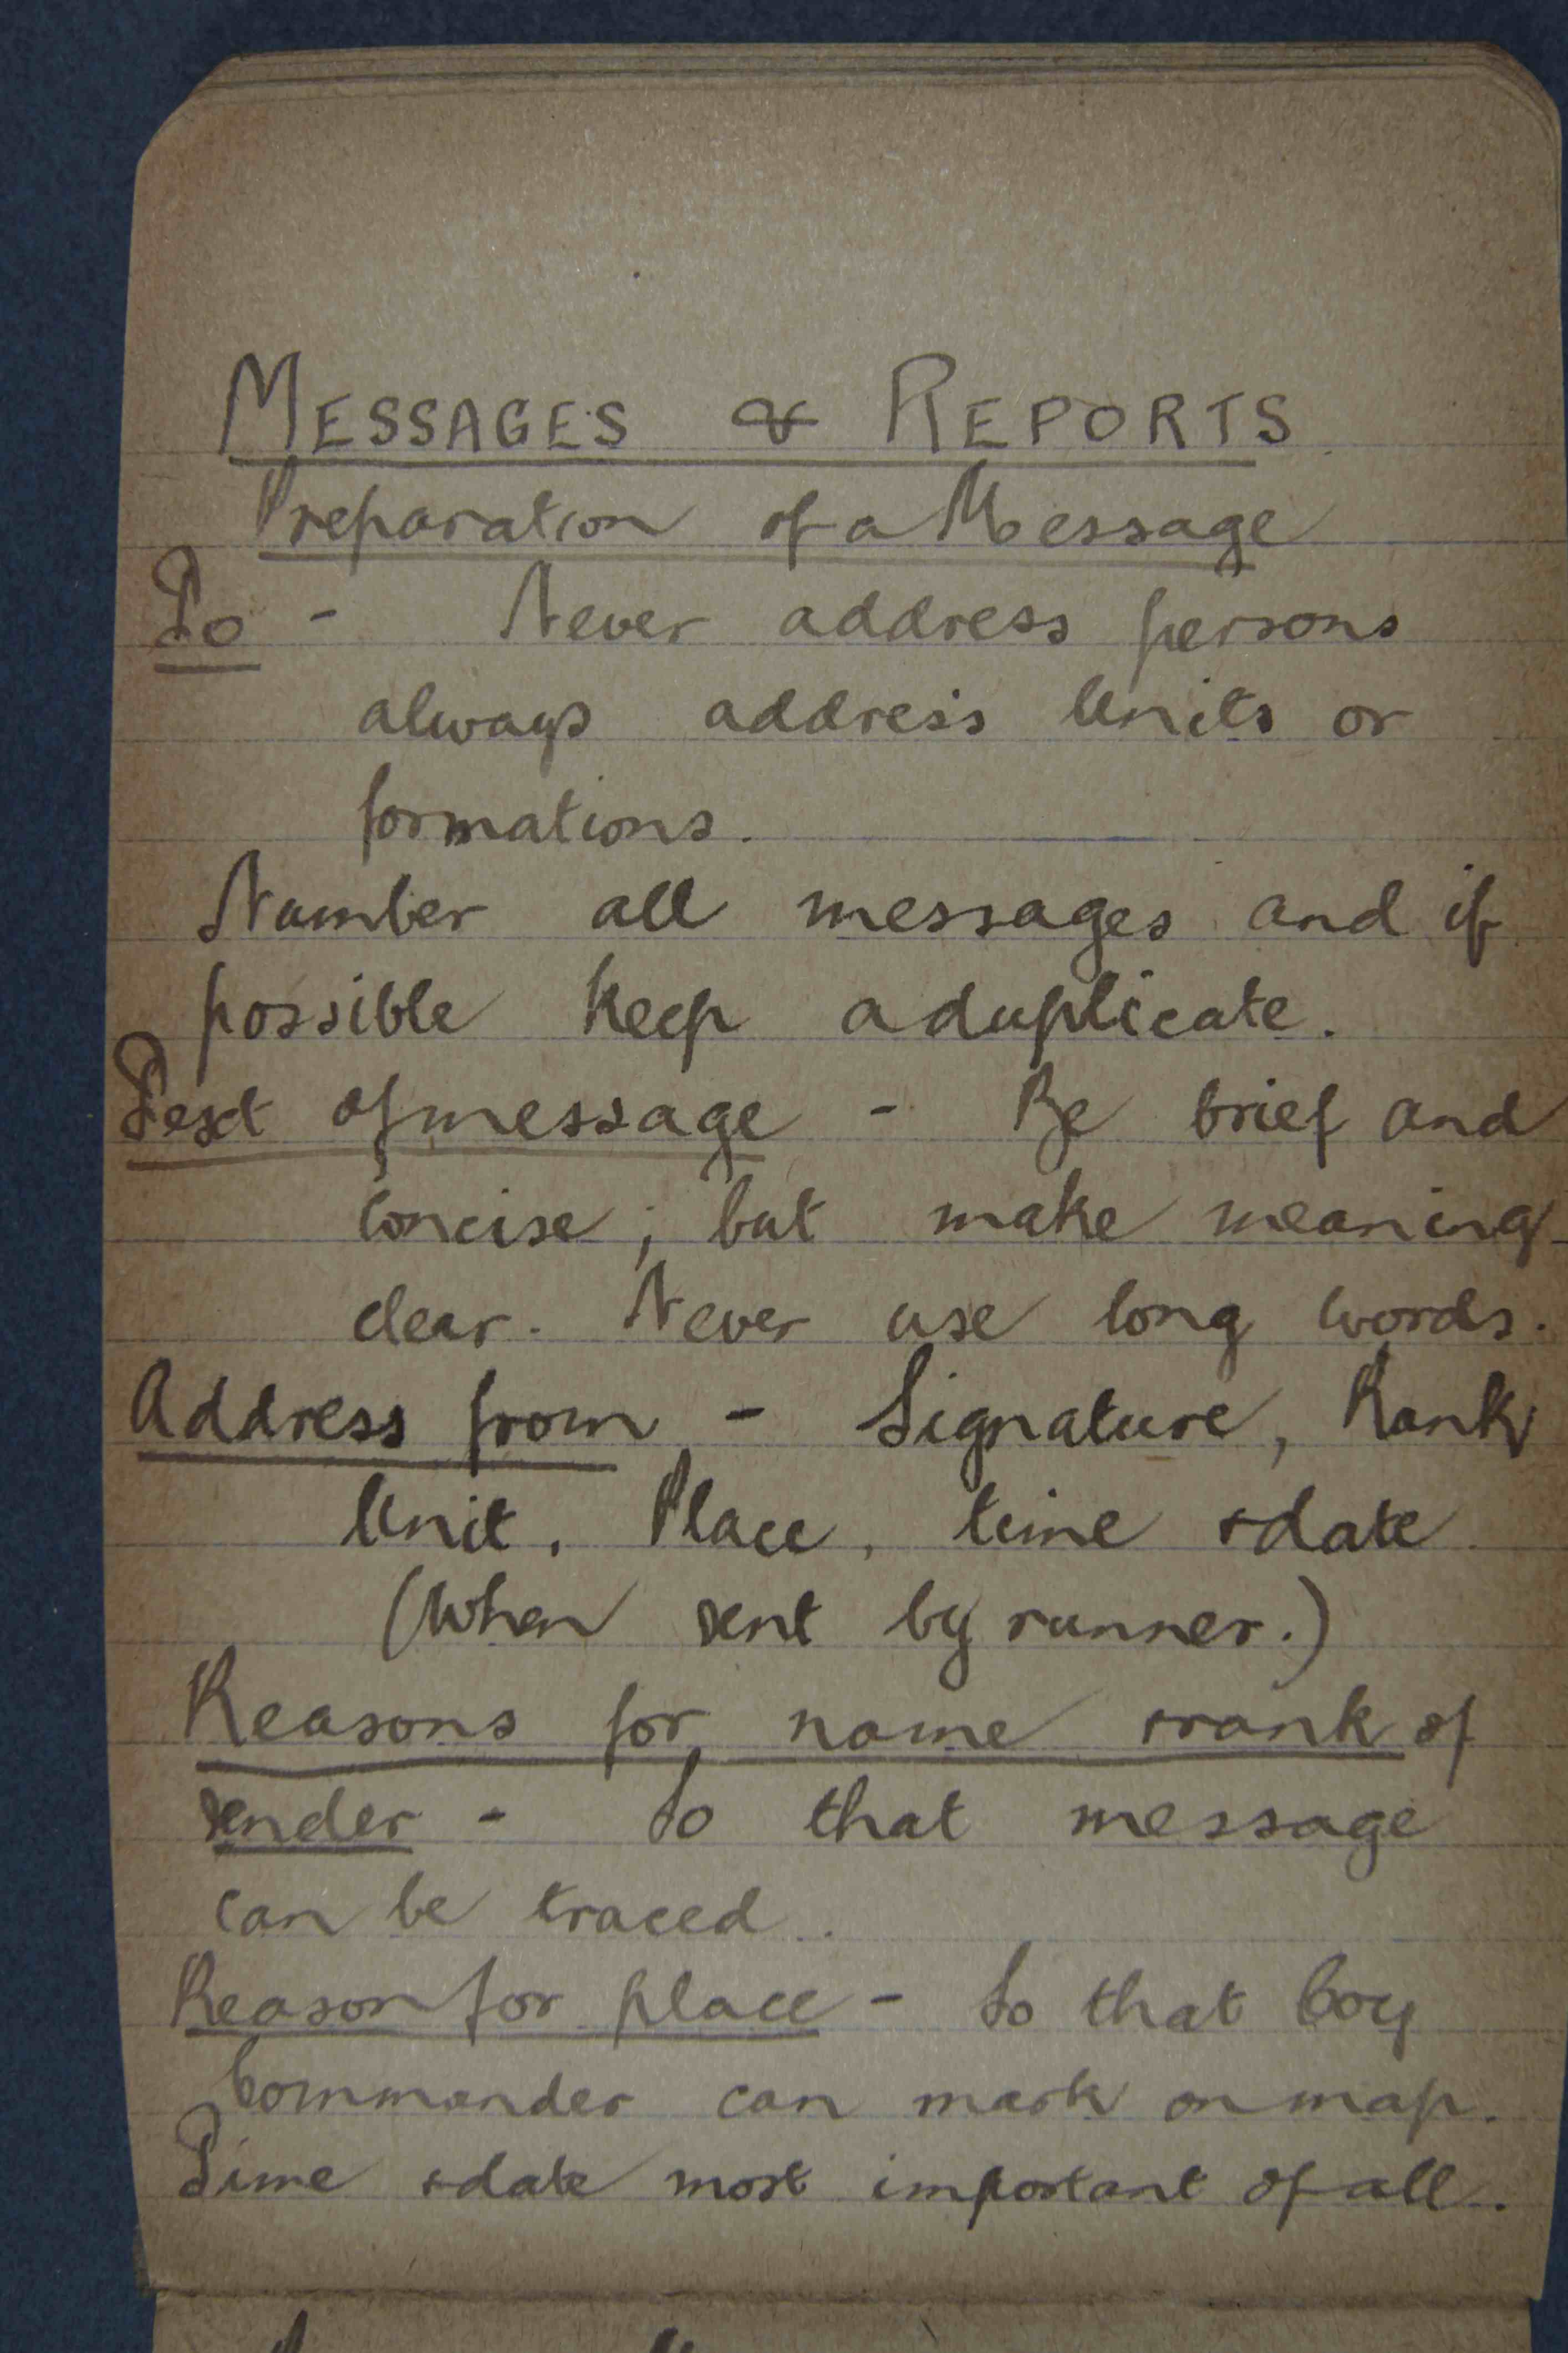 MESSAGES & REPORTS
Preparation of a Message
To - Never address persons
always address Units or
formations.
Number all messages and if
possible keep a duplicate.
Text of message - Be brief and
concise; but make meaning
clear. Never use long words.
Address from - Signature, Rank
Unit, Place, time & date
(When sent by runner.)
Reasons for name & rank of
sender - So that message
can be traced.
Reason for place - So that Coy
Commander can mark on map.
Time & date most important of all.